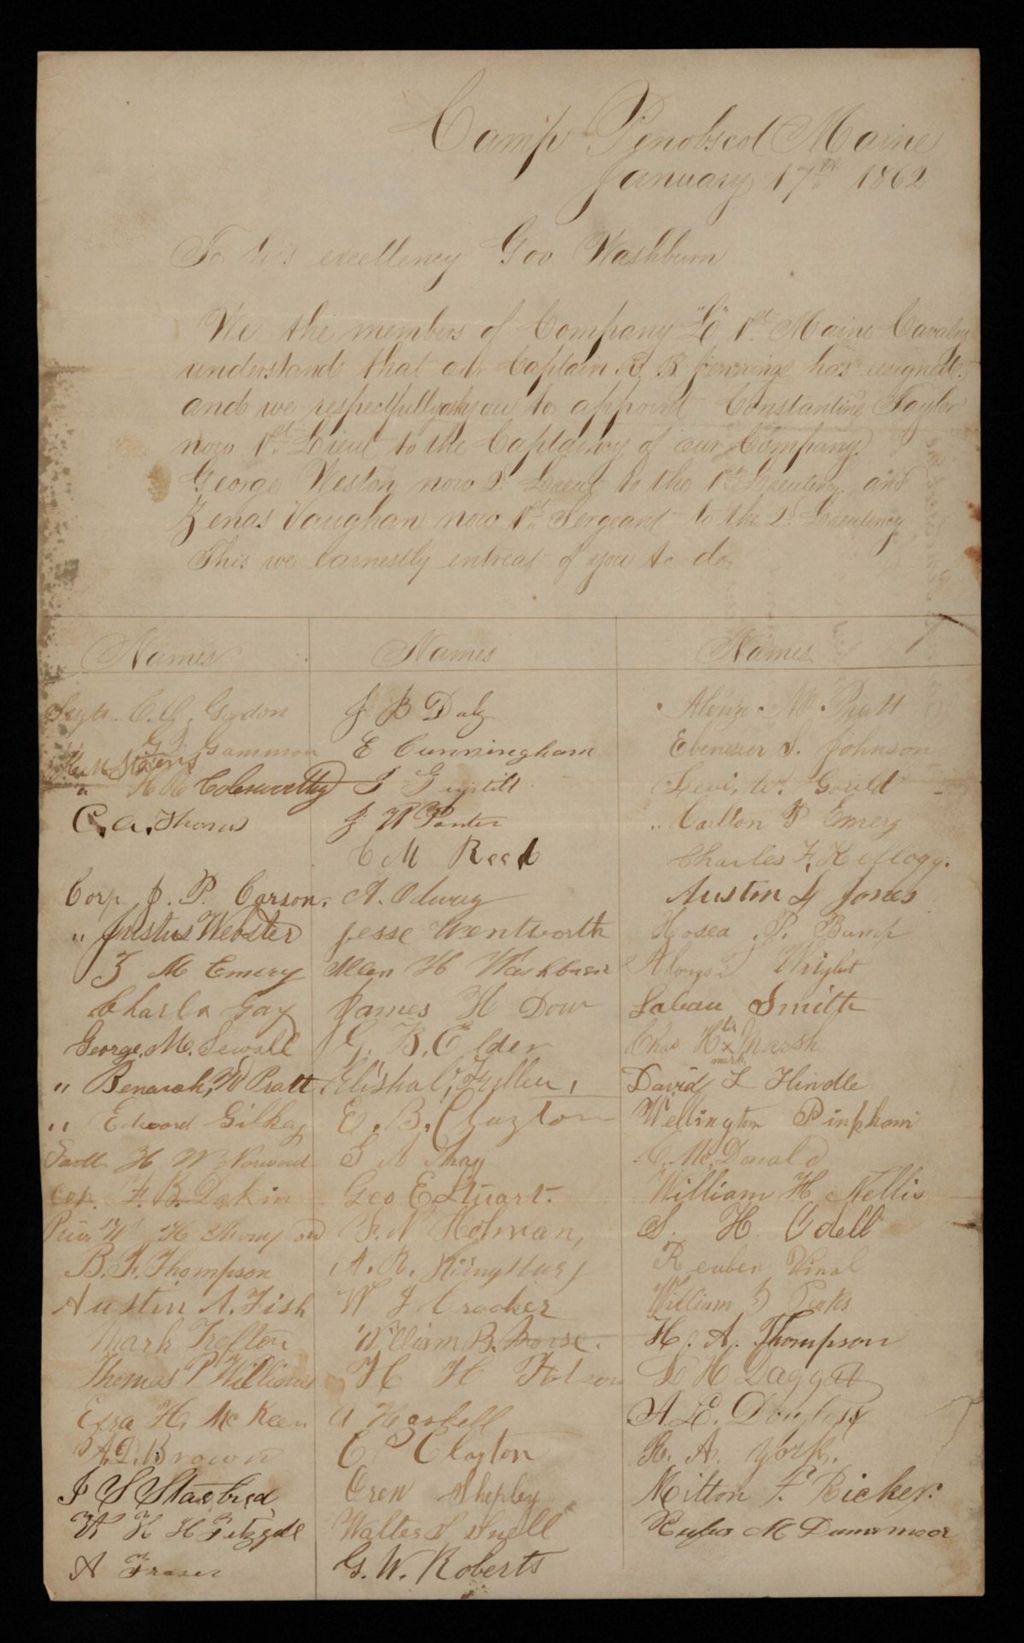 Camp Penobscot Maine
January 17th 1862
To his excellency Gov Washburn
We the members of Company 1st Maine Cavalry
understands that our Captain has resigned
and we respectfully ask you to appoint Constantine Taylor
now 1st Lieut to the Captaincy of our Company
George Weston now 2d Lieut to the 1st Lieutency and
Zenas Vaughan now 1st Sergeant to the 2d Lieutency
This we earnestly entreat of you to do
Names Names Names
Gordon
Gammon
Stevens
" Colesworthy
C. A.
Corp J. P. Carson.
" Justus Webster
Z M Emery
Charles Gay
George. M. Sewall
" Benaiah W Pratt
" Edward Gilkey
H W Norwood
Cor. F. B. Dakin
H
B. F. Thompson
Austin A. Fish
Mark Trefton
Thomas P Williams
Ezra H. McKeen
A. D. Brown
J S Starbird
W H H
A Fraser
J B Daly
E Cunningham
J
J W Porter
C M Reed
A. Odway
Jesse Wentworth
Allen H Washburn
James H Dow
G. B. Elder
Elisha Fuller,
E. B. Clayton
Shay
Geo E Stuart.
Holman,
A. R. Kingsbury
W J Crocker
William B. Morse.
H H
A Haskell
C P Clayton
Oren Shepley
Walter S Snell
G. W. Roberts
Alonzo M Pratt
Ebenezer S. Johnson
Levi W. Gould
Carlton P Emery
Charles F. Kellogg.
Austin Jones
Hosea P. Bump
Alonzo Wright
Laban Smith
Chas H his x mark Marsh
David L Hindle
Wellington Pinkham
McDonald
William H Nellis
S. H. Odell
Reuben Vinal
William
H. A. Thompson
H Daggett
A. E. Douglass
R. A. York.
Milton F. Ricker.
Rufus M Dunsmoor